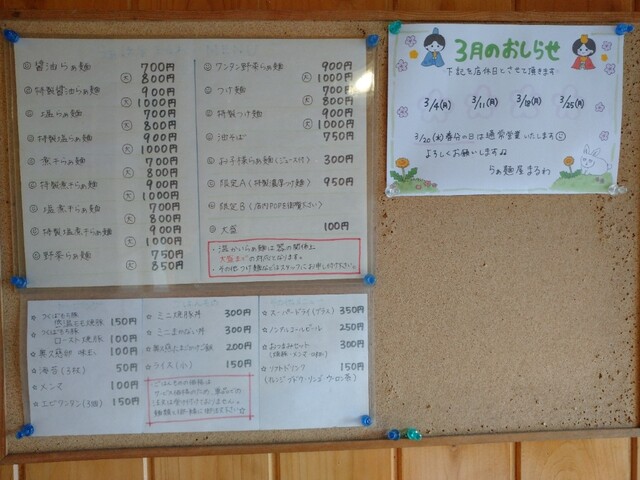 ◎ 醤油らぁ麺 700円
大 800円
◎ 特製醤油らぁ麺 900円
大 1000円
◎ 塩らぁ麺 700円
大 800円
◎ 特製塩らぁ麺 900円
大 1000円
◎ 煮干らぁ麺 700円
大 800円
◎ 特製煮干らぁ麺 900円
大 1000円
◎ 塩煮干らぁ麺 700円
大 800円
◎ 特製塩煮干らぁ麺 900円
大 1000円
◎ 野菜らぁ麺 750円
大 850円
◎ ワンタン野菜らぁ麺 900円
大 1000円
◎ つけ麺 700円
大 800円
◎ 特製つけ麺 900円
大 1000円
◎ 油そば 750円
◎ お子様らぁ麺(ジュース付) 300円
◎ 限定A(特製濃厚つけ麺) 950円
◎ 限定B(店内POPを御覧下さい)
◎ 大盛 100円
・温かいらぁ麺は器の関係上
大盛までの対応となります。
・その他つけ麺などはスタッフにお申し付け下さい。
3月のおしらせ
下記を店休日とさせて頂きます
3/4(月) 3/11(月) 3/18(月) 3/25(月)
3/20(水)春分の日は通常営業いたします
よろしくお願いします
らぁ麺屋まるわ
☆ つくばもち豚
低温もも焼豚 150円
☆ つくばもち豚
ロースト焼豚 100円
☆ 奥久慈卵 味玉 100円
☆ 海苔(3枚) 50円
☆ メンマ 100円
☆ エビワンタン(3個) 150円
☆ ミニ焼豚丼 300円
☆ ミニまかない丼 300円
☆ 奥久慈たまごかけご飯 200円
☆ ライス(小) 150円
ごはんものの価格は
サービス価格のため、単品での
注文は受け付けておりません。
麺類と御一緒に御注文下さい
☆ スーパードライ(グラス) 350円
☆ ノンアルコールビール 250円
☆ おつまみセット 300円
☆ ソフトドリンク 150円
(オレンジ・ブドウ・リンゴ・ウーロン茶)